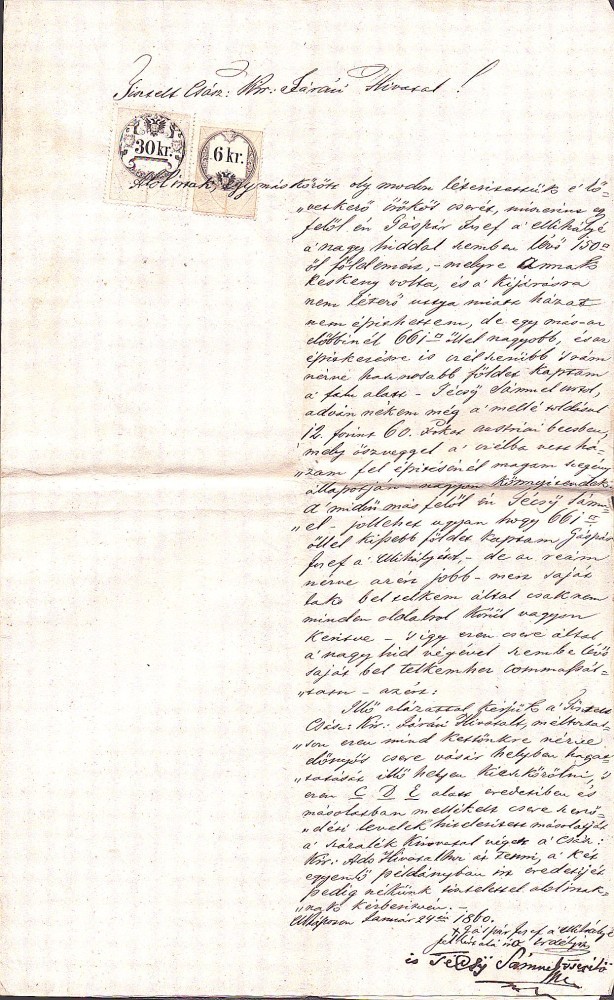 Tisztelt Csász: Kir: Járási Hivatal!
30 kr.
6 kr.
Alolirtak, egymás között oly modon létesitettük é kö-
„vetkező örökös cserét, miszerint egy
felöl én Gáspár Josef a Mihályé
a nagy hiddal szemben lévő 150
öl földemért, - melyre annak
keskeny volta, és a kijárásra
nem létező utzja miatt házat
nem épithettem, de egy más az
előbbinél 66 öllel nagyobb, és az
épitkezésre is czélszerübb s rám
nézve hasznosabb földet kaptam
a falu alatt - Técsÿ Sámuel urtol,
adván nékem még a mellé toldásul
12. forint 60. xrkat austriai becsben,
mely öszveggel a czélba vett há-
„zam fel épitésénél magam szegény
állapotján nagyon könnyitendek
A midőn más felöl én Técsÿ Sámu-
„el - jollehet ugyan hogy 66
öllel kissebb földet kaptam Gáspár
Josef a Mihályért, - de az reám
nézve azért jobb - mert saját
bel telkem által csak nem
minden oldalrol körül vagyon
keritve - s igy ezen csere által
a nagy hid végével szembe lévő
saját bel telkemhez commassál-
„tatn - azért:
Illő alázattal kérjük a Tisztelt
Csász: Kir: Járási Hivatalt, méltoztas-
„son ezen mind kettőnkre nézve
előnyös csere vásár helyben hagyat-
„tatását illő helyen kieszközölni, s
ezen C D E alatt eredetiben és
másolatban mellékelt csere szerző-
„dési levelek hitelesitett másolatját
a százalék kirovatal végett a Csász:
Kir: Ado Hivatalhoz át tenni, a két
egyenlő példányban irt eredetijét
pedig nékünk tisztelettel alolirtak-
„nak kézbesitvén. -
Január 24én 1860.
+ Gáspár Josef a Mihályé
és Técsÿ Sámuel